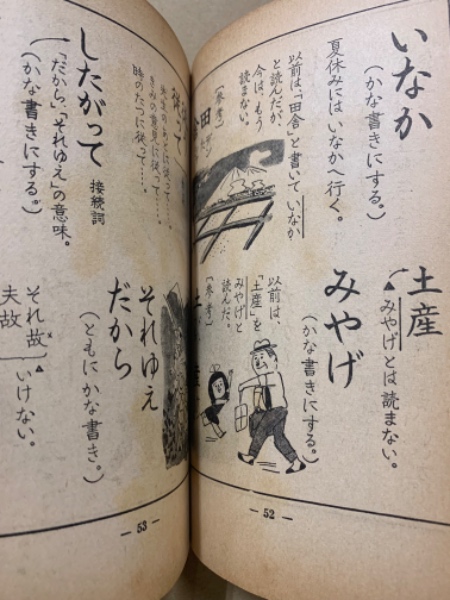 いなか
(かな書きにする。)
夏休みには いなかへ行く。
以前は「田舎」と書いて いなか
と読んだが、
今は、もう
読まない。
〔参考〕
田
土産
みやげとは読まない。
みやげ
(かな書きにする。)
以前は、
「土産」を
みやげと
読んだ。
〔参考〕
— 52 —
従って
先生のあとに従って……。
きみの意見に従って……。
時のたつに従って……。
したがって 接続詞
「だから」、「それゆえ」の意味。
(かな書きにする。)
それゆえ
だから
(ともに かな書き。)
それ故
夫故
いけない。
— 53 —